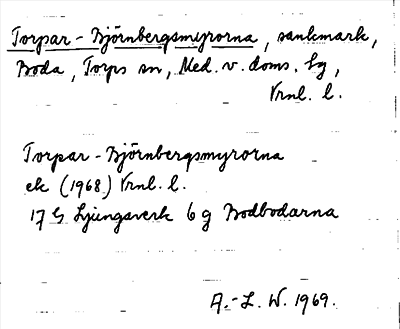 Torpar-Björnbergsmyrorna, sankmark,
Boda, Torps sn, Med. v. doms. sg,
Vrnl. l.
Torpar-Björnbergsmyrorna
ek (1968) Vrnl. l.
17 G Ljungaverk 6 g Bodbodarna
A.-L. W. 1969.